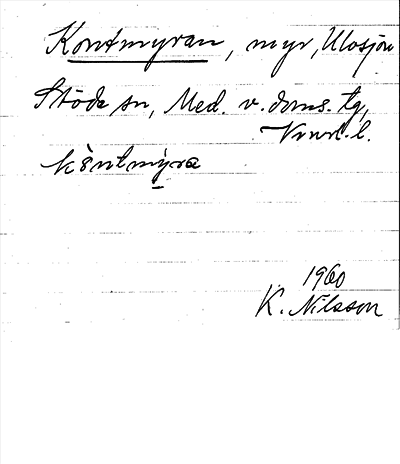 Kontmyran, myr, Ulosjön
Stöde sn, Med. v. doms. tg,
Vnrl. l.
kòntmỳra
1960
K. Nilsson